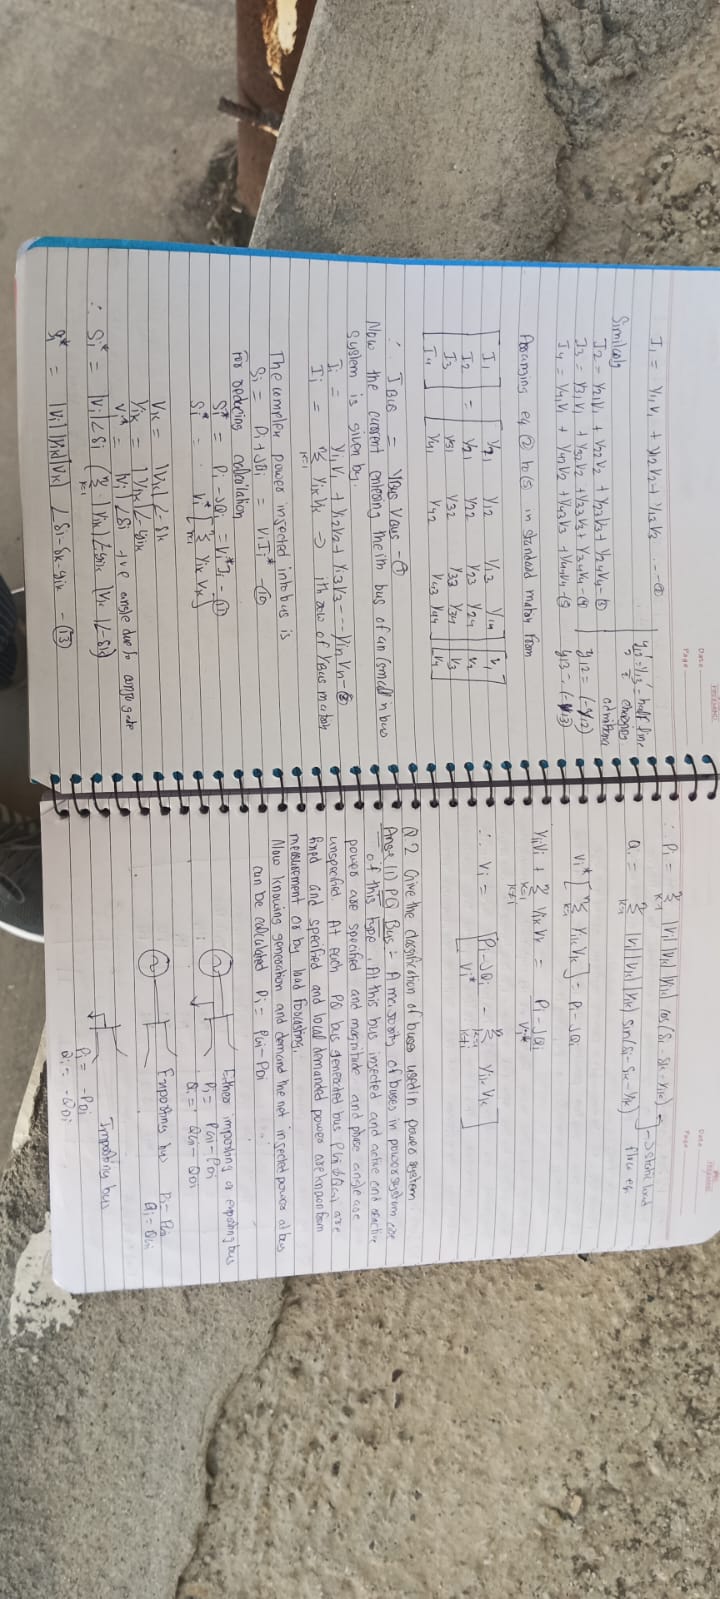 Date
Page
I1 = Y11V1 + Y12V2 + Y13V3 ---②
y12'/2 = y13'/2 - half line
charging
Similarly
I2 = Y21V1 + Y22V2 + Y23V3 + Y24V4 -③
I3 = Y31V1 + Y32V2 + Y33V3 + Y34V4 -④
y12 = (-Y12)
I4 = Y41V1 + Y42V2 + Y43V3 + Y44V4 -⑤
y13 = (-Y13)
eq ② to ⑤ in standard matrix from
I1 Y21 Y12 Y13 Y14 V1
I2 = Y21 Y22 Y23 Y24 V2
I3 Y31 Y32 Y33 Y34 V3
I4 Y41 Y42 Y43 Y44 V4
∴ IBus = YBus VBus -⑦
Now the current entering the ith bus of an (small n bus
system is given by.
Ii = Yi1V1 + Yi2V2 + Yi3V3 ---- Yin Vn -⑧
Ii = n∑K=1 Yik Vk ⇒ ith row of YBus matrix
The complex power injected into bus is
Si = Pi + JQi = ViIi* -⑩
For reducing calculation
Si* = Pi - JQi = Vi*Ii -⑪
Si* = Vi* [n∑K=1 Yik Vk]
Vk = |Vk| ∠-δk
Yik = |Yik| ∠-yik
Vi* = |Vi| ∠δi +ve angle due to conjugate
∴ Si* = |Vi| ∠δi (n∑k=1 |Yik| ∠yik |Vk| ∠-δk)
Si* = |Vi| |Yik| |Vk| ∠δi-δk-yik -⑬
Date
Page
∴ Pi = n∑K=1 |Vi| |Vk| |Yik| cos(δi - δk - yik)
→ static load
Qi = n∑K=1 |Vi| |Vk| |Yik| sin(δi - δk - yik)
flow eq
Vi* [n∑K=1 Yik Vk] = Pi - JQi
YiiVi + n∑K=1 K≠i Yik Vk = Pi - JQi / Vi*
∴ Vi = [Pi - JQi / Vi* - n∑k=1 k≠i Yik Vk]
Q.2 Give the classification of buses used in power system
Ans⇒ (1) PQ Bus :- A majority of buses in power system are
of this type . At this bus injected and active and reactive
power are specified and magnitude and phase angle are
unspecified. At each PQ bus generated bus PGi & QGi are
fined and specified and load demanded power are known from
measurement or by load forcasting.
Now knowing generation and demand the net injected power at bus
can be calculated Pi = PGi - PDi
Either importing or exporting bus
Pi = PGi - PDi
Qi = QGi - QDi
Exporting bus Pi = PGi
Qi = QGi
Importing bus
Pi = -PDi
Qi = -QDi